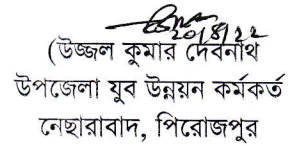 ২০/৪/২২
(উজ্জল কুমার দেবনাথ
উপজেলা যুব উন্নয়ন কর্মকর্ত
নেছারাবাদ, পিরোজপুর